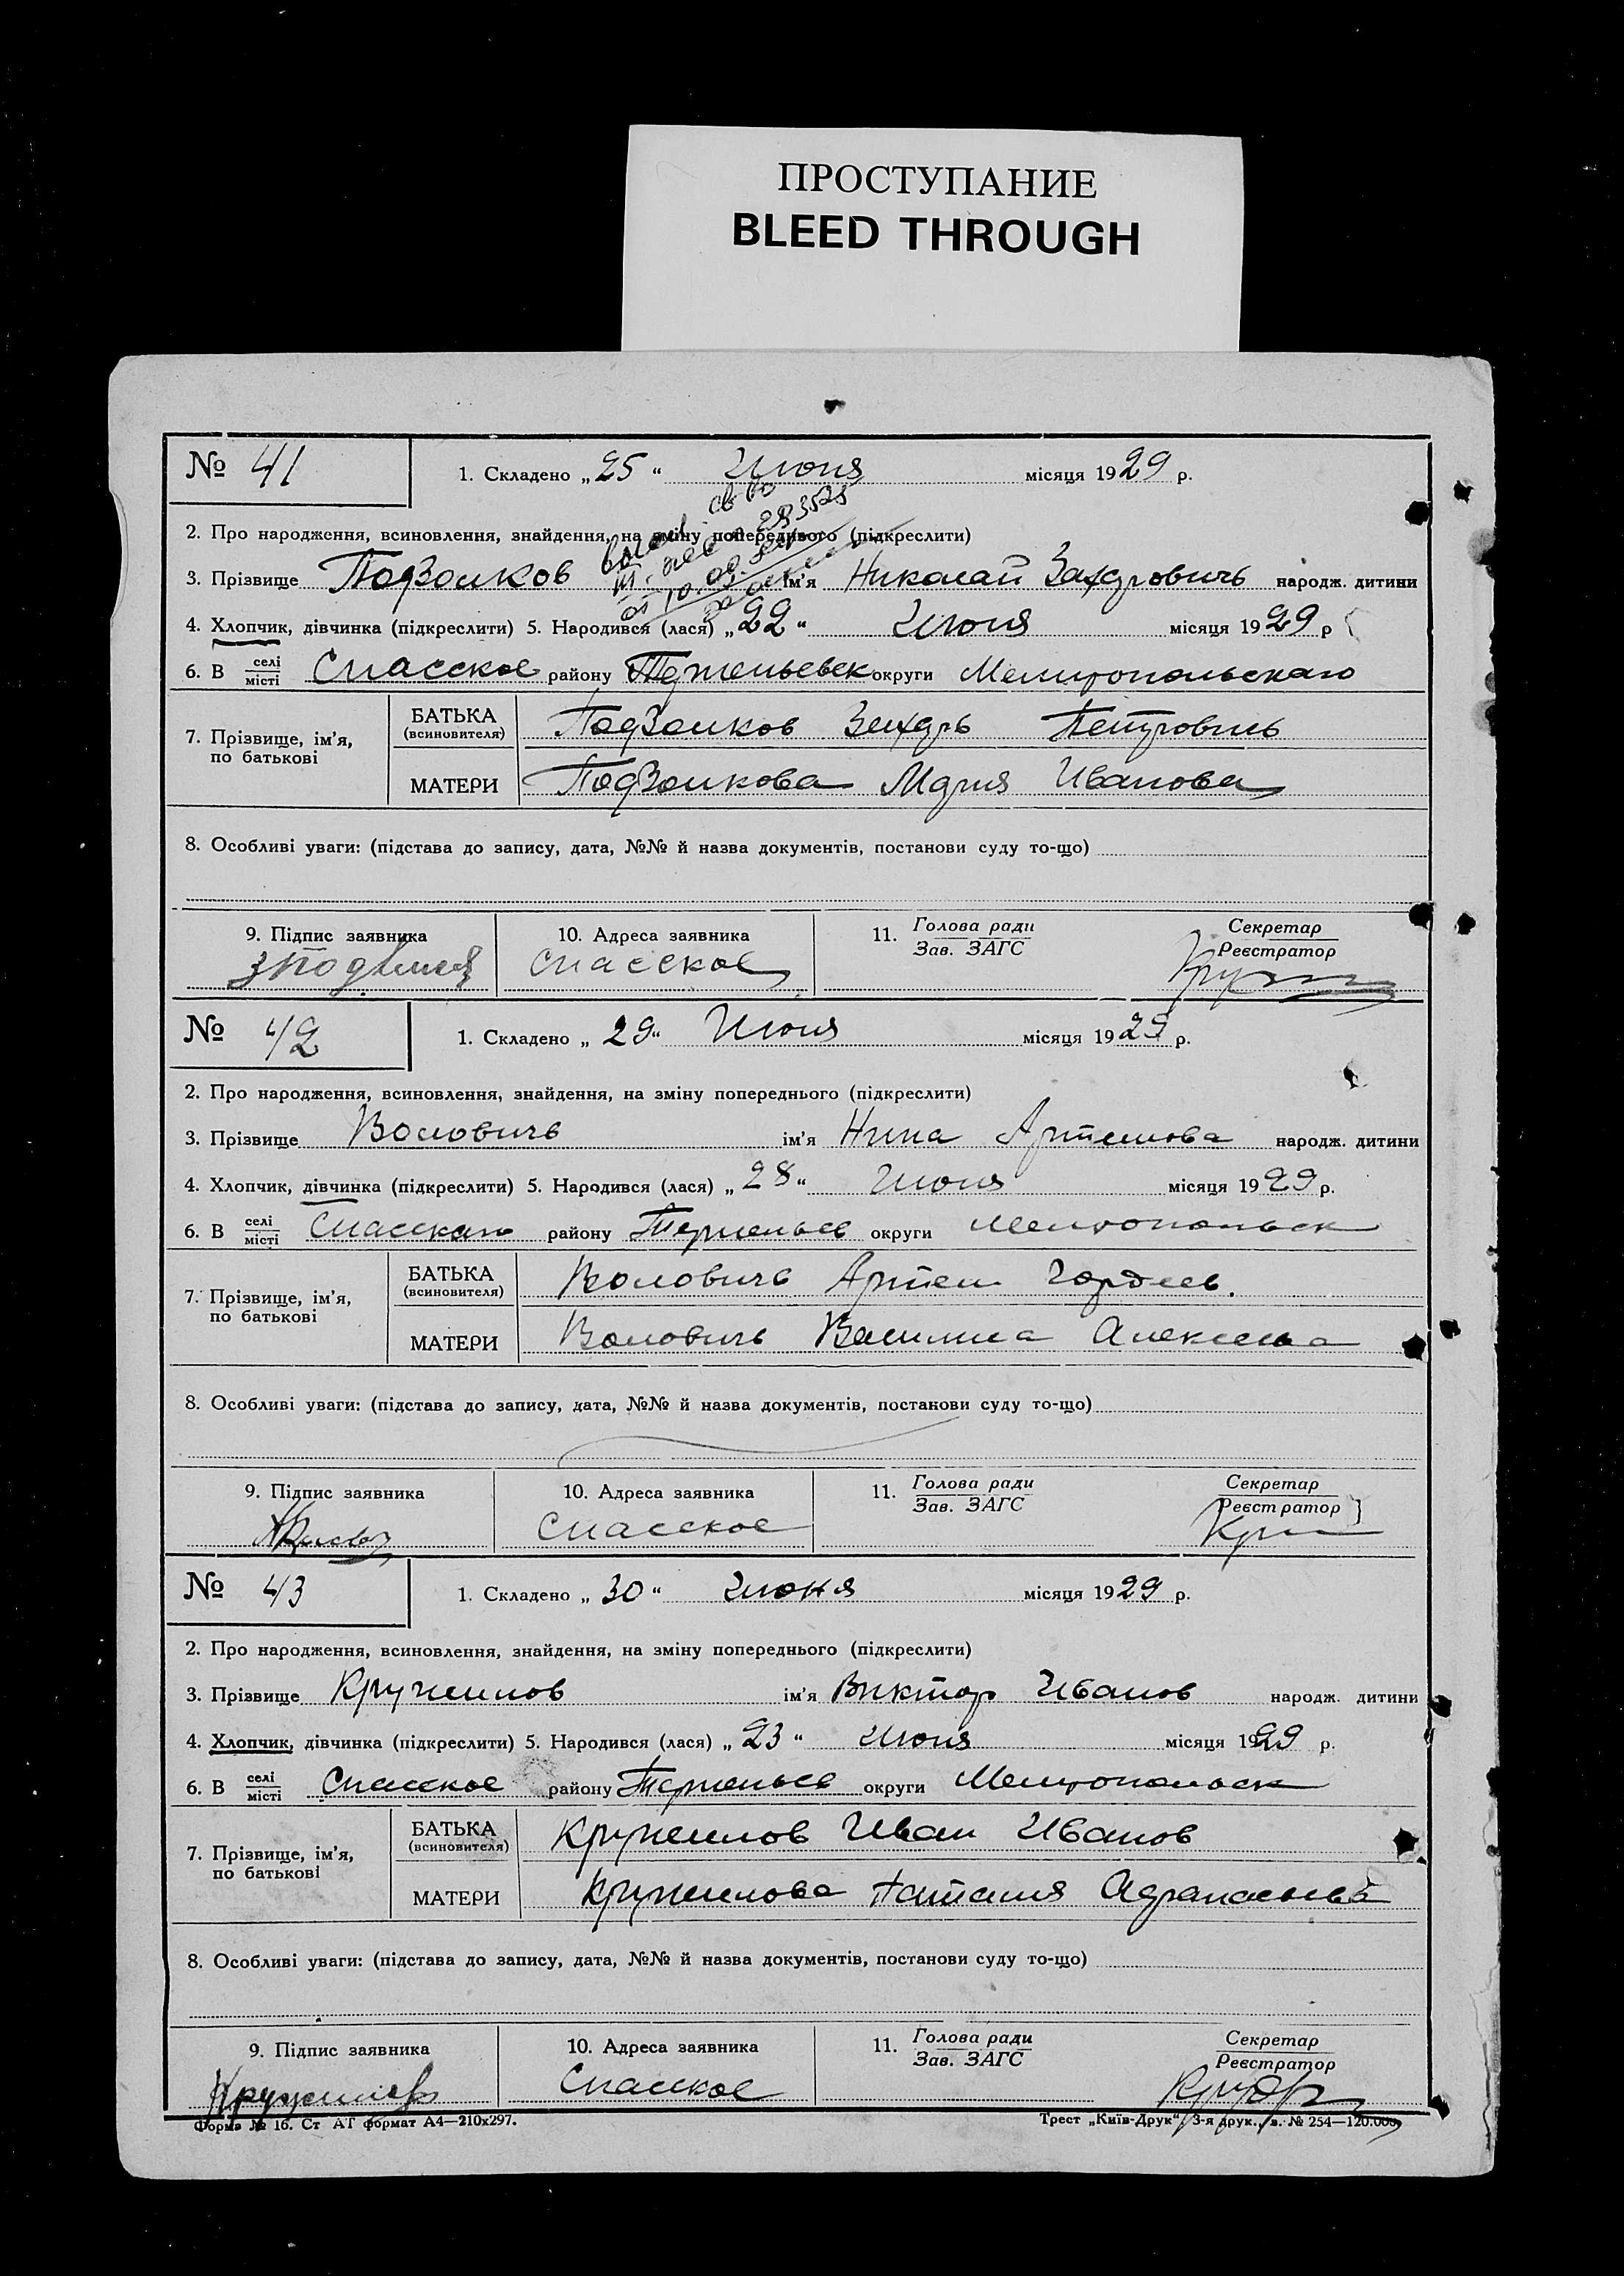 ПРОСТУПАНИЕ
BLEED THROUGH
№ 41
1. Складено „25“ Июня місяця 1929 р.
2. Про народження, всиновлення, знайдення, на зміну попереднього (підкреслити)
3. Прізвище ім'я Николай народж. дитини
4. Хлопчик, дівчинка (підкреслити) 5. Народився (лася) „22“ Июня місяця 1929 р
6. В селі місті Спасское району округи Мелитопольскаго
7. Прізвище, ім'я, по батькові
БАТЬКА (всиновителя) Петровичь
МАТЕРИ Мария Иванова
8. Особливі уваги: (підстава до запису, дата, №№ й назва документів, постанови суду то-що)
9. Підпис заявника 10. Адреса заявника 11. Голова ради Зав. ЗАГС Секретар Реєстратор
Спасское
№ 42
1. Складено „29“ Июня місяця 1929 р.
2. Про народження, всиновлення, знайдення, на зміну попереднього (підкреслити)
3. Прізвище Воловичь ім'я Нина Артемова народж. дитини
4. Хлопчик, дівчинка (підкреслити) 5. Народився (лася) „28“ Июня місяця 1929 р.
6. В селі місті району округи Мелитопольск
7. Прізвище, ім'я, по батькові
БАТЬКА (всиновителя) Воловичь Артем Гордеев.
МАТЕРИ Воловичь
8. Особливі уваги: (підстава до запису, дата, №№ й назва документів, постанови суду то-що)
9. Підпис заявника 10. Адреса заявника 11. Голова ради Зав. ЗАГС Секретар Реєстратор
Спасское
№ 43
1. Складено „30“ Июня місяця 1929 р.
2. Про народження, всиновлення, знайдення, на зміну попереднього (підкреслити)
3. Прізвище Кружилов ім'я Виктор Иванов народж. дитини
4. Хлопчик, дівчинка (підкреслити) 5. Народився (лася) „23“ Июня місяця 1929 р.
6. В селі місті Спасское району округи Мелитопольск
7. Прізвище, ім'я, по батькові
БАТЬКА (всиновителя) Кружилов Иван Иванов
МАТЕРИ Кружилова Наталия
8. Особливі уваги: (підстава до запису, дата, №№ й назва документів, постанови суду то-що)
9. Підпис заявника 10. Адреса заявника 11. Голова ради Зав. ЗАГС Секретар Реєстратор
Спасское
Форма № 16. Ст АТ формат А4—210х297. Трест „Київ-Друк“, 3-я друк., з. № 254—120.000